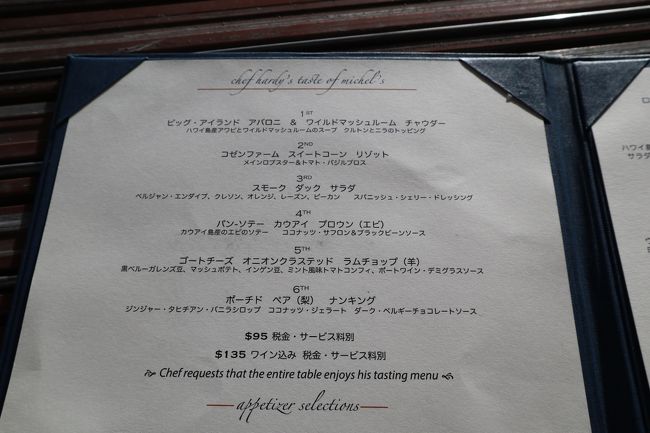 chef hardy's taste of michel's
1ST
ビッグ・アイランド アバロニ & ワイルドマッシュルーム チャウダー
ハワイ島産アワビとワイルドマッシュルームのスープ クルトンとニラのトッピング
2ND
コゼンファーム スイートコーン リゾット
メインロブスター&トマト・バジルブロス
3RD
スモーク ダック サラダ
ベルジャン・エンダイブ、クレソン、オレンジ、レーズン、ピーカン スパニッシュ・シェリー・ドレッシング
4TH
パン-ソテー カウアイ プロウン(エビ)
カウアイ島産のエビのソテー ココナッツ・サフロン&ブラックビーンソース
5TH
ゴートチーズ オニオンクラステッド ラムチョップ(羊)
黒ベルーガレンズ豆、マッシュポテト、インゲン豆、ミント風味トマトコンフィ、ポートワイン・デミグラスソース
6TH
ポーチド ペア(梨) ナンキング
ジンジャー・タヒチアン・バニラシロップ ココナッツ・ジェラート ダーク・ベルギーチョコレートソース
$95 税金・サービス料別
$135 ワイン込み 税金・サービス料別
Chef requests that the entire table enjoys his tasting menu
appetizer selections
ハワイ
サラダ